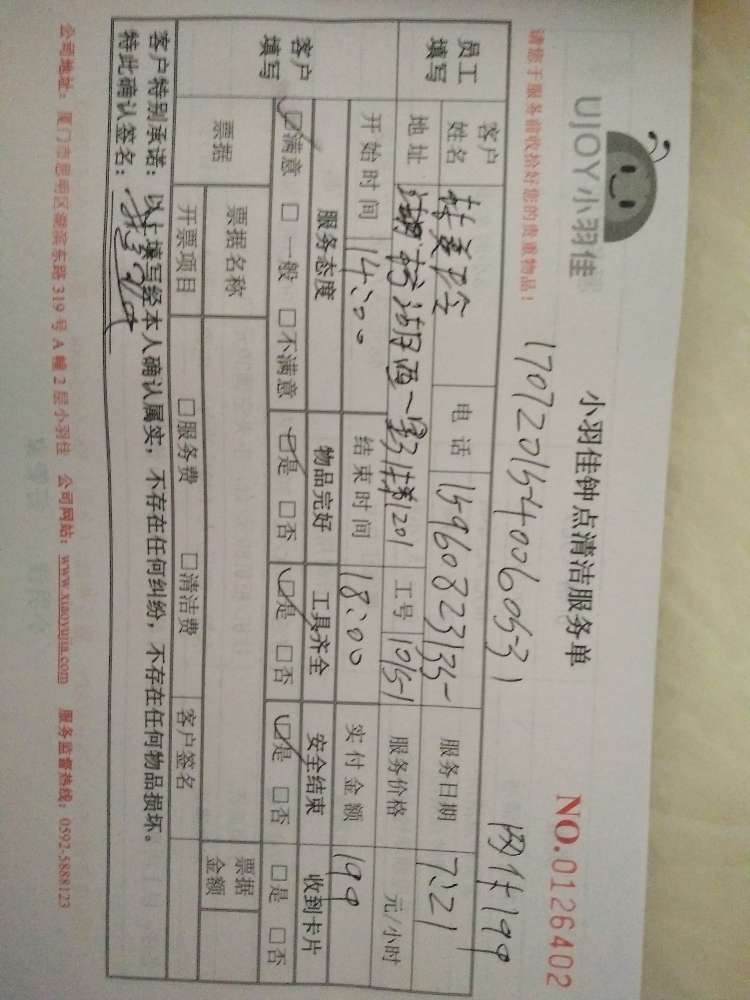 UJOY小羽佳
小羽佳钟点清洁服务单
NO.0126402
请您于服务前收拾好您的贵重物品！
1707201540060531
网付199
员工填写
客户姓名 电话 15960823135 服务日期 7:21
地址 湖西一里 1201 工号 1051 服务价格 元/小时
开始时间 14:00 结束时间 18:00 实付金额 199
客户填写
服务态度 物品完好 工具齐全 安全结束 收到卡片
☑满意 □一般 □不满意 ☑是 □否 ☑是 □否 ☑是 □否 □是 □否
票据 票据名称 票据金额
开票项目 □服务费 □清洁费 客户签名
客户特别承诺：以上填写经本人确认属实，不存在任何纠纷，不存在任何物品损坏。
特此确认签名：
公司地址：厦门市思明区湖滨东路319号A幢2层小羽佳 公司网站：www.xiaoyujia.com 服务监督热线：0592-5888123